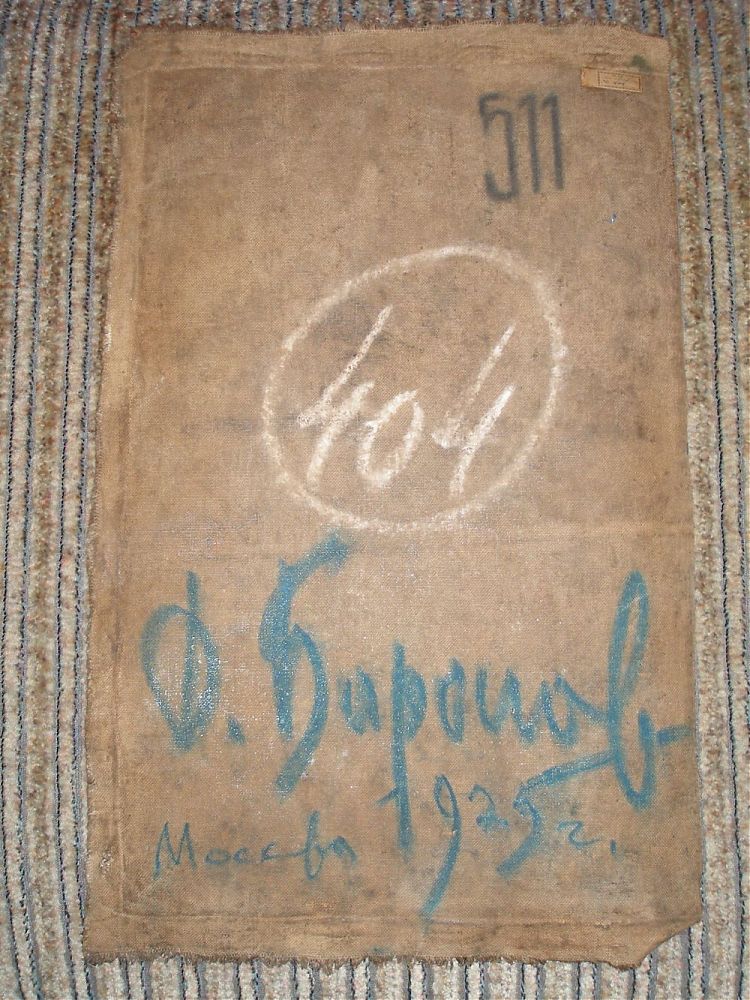 511
404
Д. Баронов
1925 г.
Москва